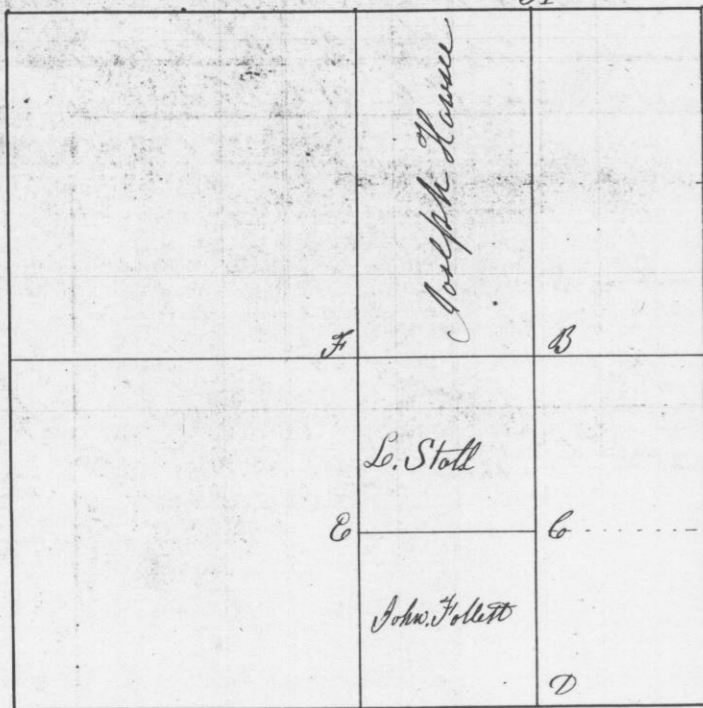 Joseph
F
B
L. Stoll
E
C
John. Follett
D